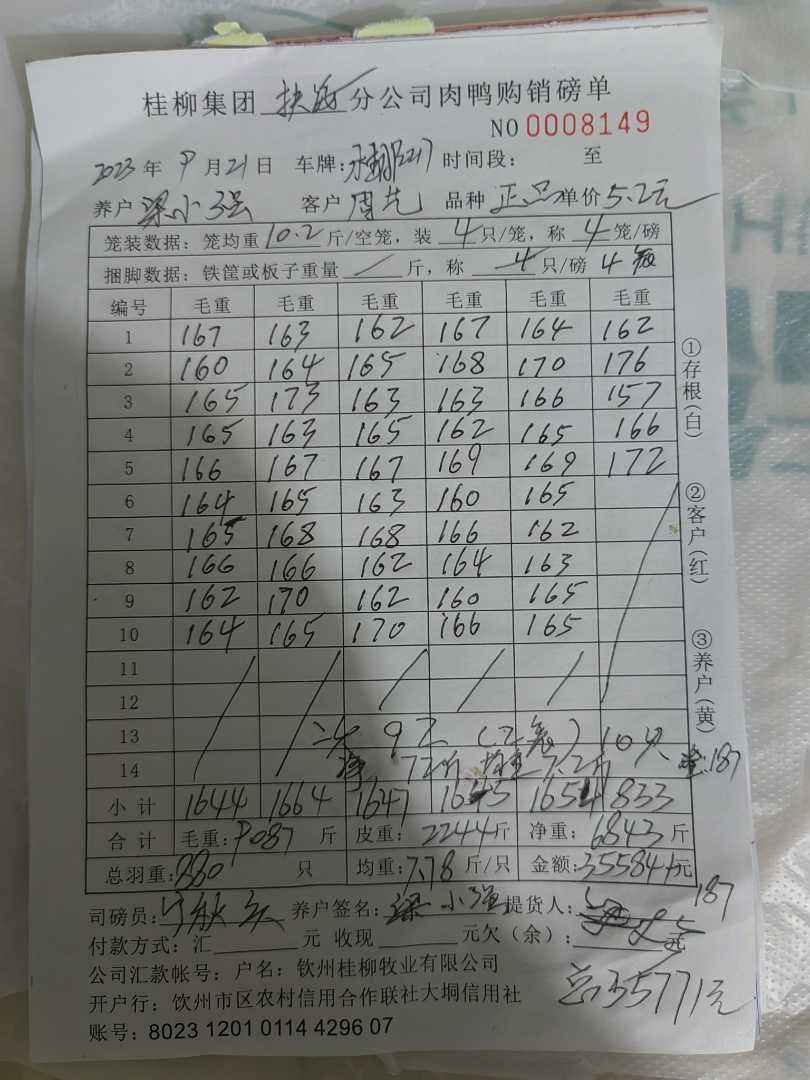 桂柳集团 扶海 分公司肉鸭购销磅单
NO 0008149
2023 年 9 月 21 日 车牌: 时间段: 至
养户 梁小强 客户 周 品种 正品 单价 5.2元
笼装数据: 笼均重 10.2 斤/空笼, 装 4 只/笼, 称 4 笼/磅
捆脚数据: 铁筐或板子重量 / 斤, 称 4 只/磅
编号 毛重 毛重 毛重 毛重 毛重 毛重
1 167 163 162 167 164 162
2 160 164 165 168 170 176
3 165 173 163 163 166 157
4 165 163 165 162 165 166
5 166 167 167 169 169 172
6 164 165 163 160 165
7 165 168 168 166 162
8 166 166 162 164 163
9 162 170 162 160 165
10 164 165 170 166 165
11
12
13
14
187
小计 1644 1664 1647 1645 1654 833
合计 毛重: 9087 斤 皮重: 2244 斤 净重: 6843 斤
总羽重: 880 只 均重: 7.78 斤/只 金额: 35584 元
187
司磅员: 养户签名: 梁小强 提货人:
付款方式: 汇 元 收现 元欠(余): 元
公司汇款帐号: 户名: 钦州桂柳牧业有限公司
总35771元
开户行: 饮州市区农村信用合作联社大垌信用社
账号: 8023 1201 0114 4296 07
①存根(白)
②客户(红)
③养户(黄)